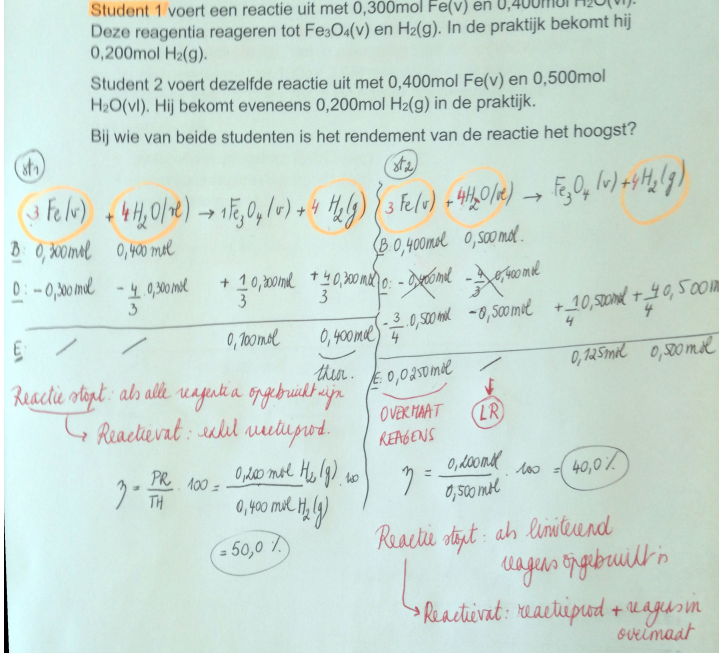 Student 1 voert een reactie uit met 0,300mol Fe(v) en 0,400mol H₂O(vl).
Deze reagentia reageren tot Fe₃O₄(v) en H₂(g). In de praktijk bekomt hij
0,200mol H₂(g).
Student 2 voert dezelfde reactie uit met 0,400mol Fe(v) en 0,500mol
H₂O(vl). Hij bekomt eveneens 0,200mol H₂(g) in de praktijk.
Bij wie van beide studenten is het rendement van de reactie het hoogst?
st1
3 Fe(v) + 4H₂O(vl) → 1Fe₃O₄(v) + 4 H₂(g)
B: 0,300mol 0,400mol
O: -0,300mol -4/3 0,300mol +1/3 0,300mol +4/3 0,300mol
E: / / 0,100mol 0,400mol
theor.
Reactie stopt: als alle reagentia opgebruikt zijn
↳ Reactievat: enkel reactieprod.
η = PR/TH . 100 = 0,200 mol H₂(g)/0,400 mol H₂(g) . 100
= 50,0 %
st2
3 Fe(v) + 4H₂O(vl) → Fe₃O₄(v) + 4H₂(g)
B: 0,400mol 0,500mol.
O: -0,400mol -4/3 0,400mol
-3/4 . 0,500mol -0,500mol +1/4 0,500mol +4/4 0,500m
E: 0,0250mol / 0,125mol 0,500mol
OVERMAAT LR
REAGENS
η = 0,200mol/0,500mol . 100 = 40,0 %
Reactie stopt: als limiterend
reagens opgebruikt is
↳ Reactievat: reactieprod + reagens in
overmaat